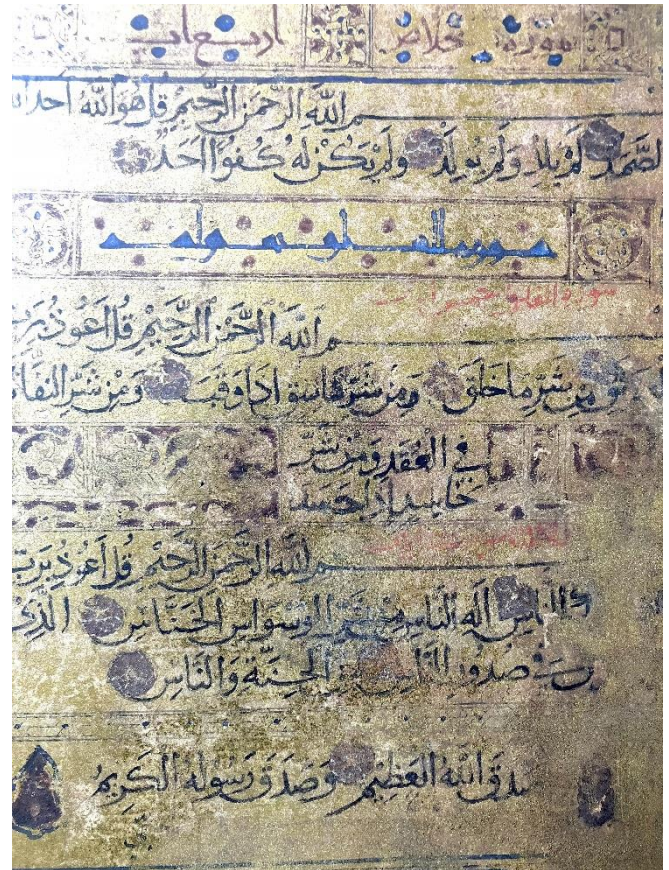 سورة خلاص اربع ايات
بسم اللهِ الرَّحْمَنِ الرَّحِيمِ قُلْ هُوَ اللَّهُ أَحَد الله
الصَّمَدُ لَمْ يَلِدْ وَلَمْ يُولَدْ وَلَمْ يَكُنْ لَهُ كُفُوًا أَحَدٌ
سورة الفلق
سم اللهِ الرَّحْمَنِ الرَّحِيمِ قُلْ أَعُوذُ بِرَبِّ
مِنْ شَرِّ مَا خَلَقَ وَمِنْ شَرِّ غَاسِقٍ اذَا وَقَبَ وَمِنْ شَرِّ النفَّا
فِي الْعُقَدِ وَمِنْ شَرِّ
حَاسِدٍ إِذَا حَسَدَ
سم اللهِ الرَّحْمَنِ الرَّحِيمِ قُلْ أَعُوذُ بِرَبِّ
النَّاسِ إِلَهِ النَّاسِ مِنْ شَرِّ الْوَسْوَاسِ الْخَنَّاسِ الَّذِي
فِي صُدُورِ النَّاسِ مِنَ الْجِنَّةِ وَالنَّاسِ
صدَقَ اللَّهُ الْعَظِيمُ وَصَدَقَ رَسُولُهُ الْكَرِيمُ